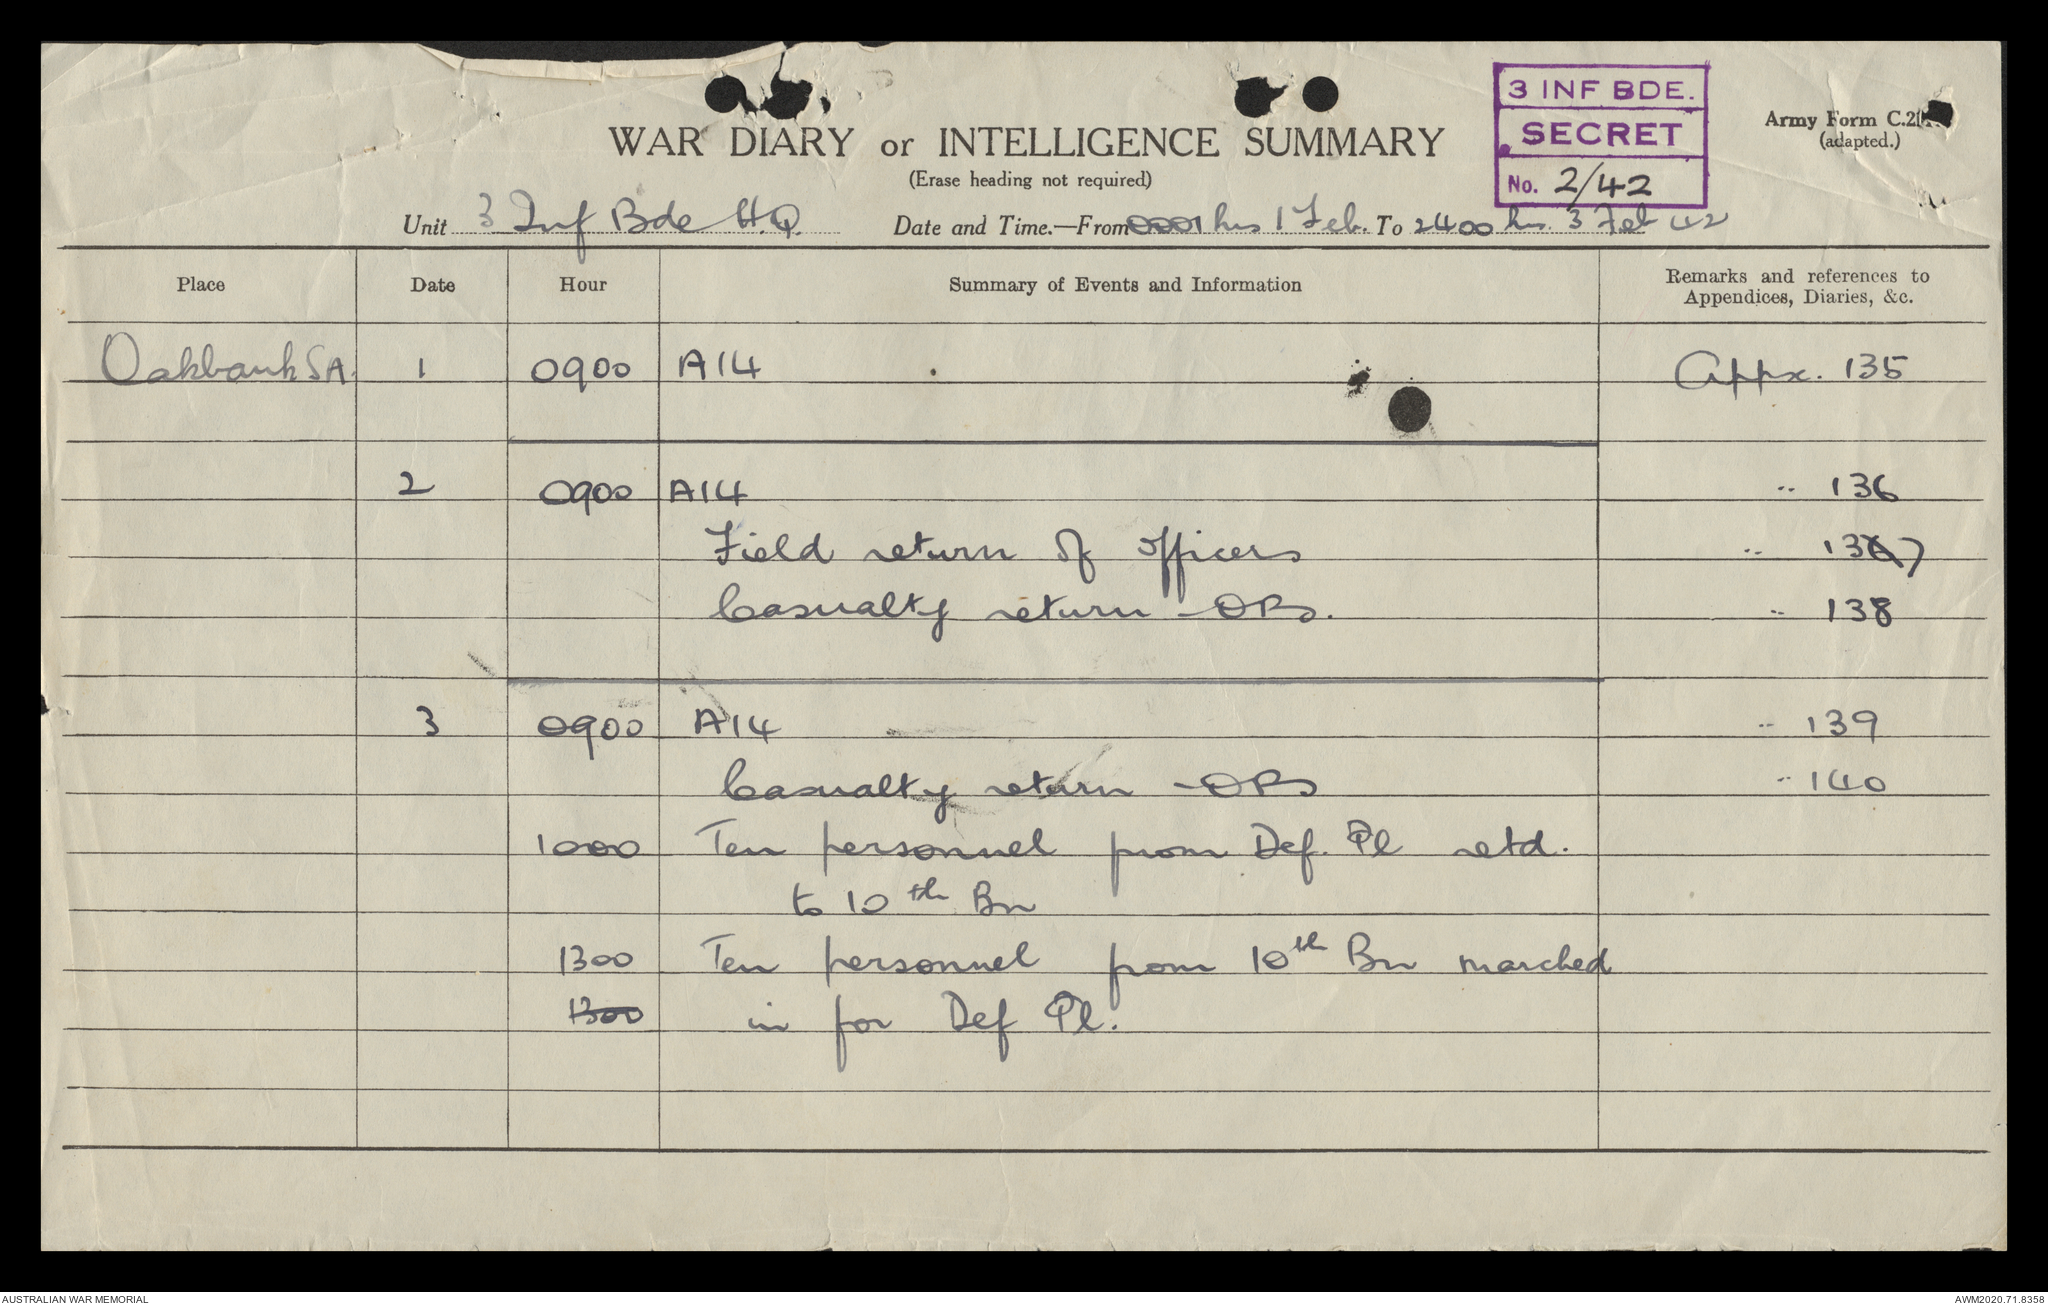 3 INF BDE.
SECRET
No. 2/42
Army Form C.21
(adapted.)
WAR DIARY or INTELLIGENCE SUMMARY
(Erase heading not required)
Unit 3 Inf Bde H.Q. Date and Time.—From 0001 hrs 1 Feb. To 2400 hrs. 3 Feb 42
Place Date Hour Summary of Events and Information Remarks and references to
Appendices, Diaries, &c.
Oakbank SA. 1 0900 A14 Appx. 135
2 0900 A14 " 136
Field return of officers " 137
Casualty return - ORs. " 138
3 0900 A14 " 139
Casualty return - ORs " 140
1000 Ten personnel from Def. Pl retd.
to 10th Bn
1300 Ten personnel from 10th Bn marched
1300 in for Def Pl.
AUSTRALIAN WAR MEMORIAL AWM2020.71.8358